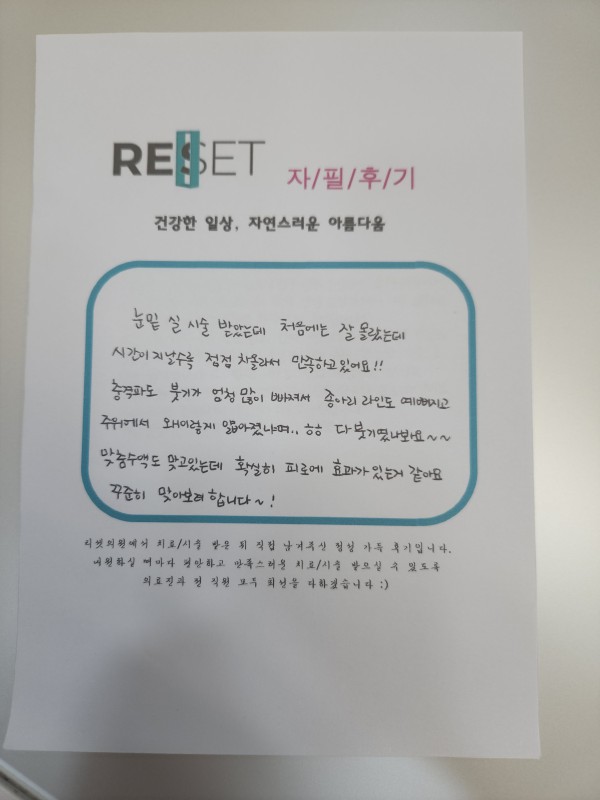 RESET
자/필/후/기
건강한 일상, 자연스러운 아름다움
눈밑 실 시술 받았는데 처음에는 잘 몰랐는데
시간이 지날수록 점점 차올라서 만족하고있어요!!
충격파도 붓기가 엄청 많이 빠져서 종아리 라인도 예뻐지고
주위에서 왜이렇게 얇아졌냐며.. ㅎㅎ 다 붓기였나봐요~~
맞춤수액도 맞고있는데 확실히 피로에 효과가 있는거 같아요
꾸준히 맞아보려 합니다~!
리셋의원에서 치료/시술 받은 뒤 직접 남겨주신 정성 가득 후기입니다.
내원하실 때마다 편안하고 만족스러운 치료/시술 받으실 수 있도록
의료진과 전 직원 모두 최선을 다하겠습니다 :)